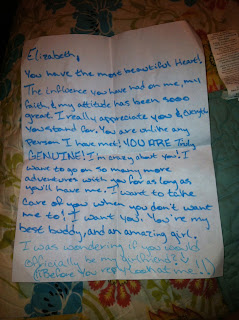 Elizabeth,
You have the most beautiful Heart!
The influence you have had on me, my
faith, & my attitude has been sooo
great. I really appreciate you & everything
you stand for. You are unlike any
person I have met! YOU ARE Truly
GENUINE! I'm crazy about you! I
want to go on so many more
adventures with you for as long as
you'll have me. I want to take
care of you when you don't want
me to! I want you. You're my
best buddy, and an amazing girl.
I was wondering if you would
officially be my girlfriend?
(Before you reply look at me!)